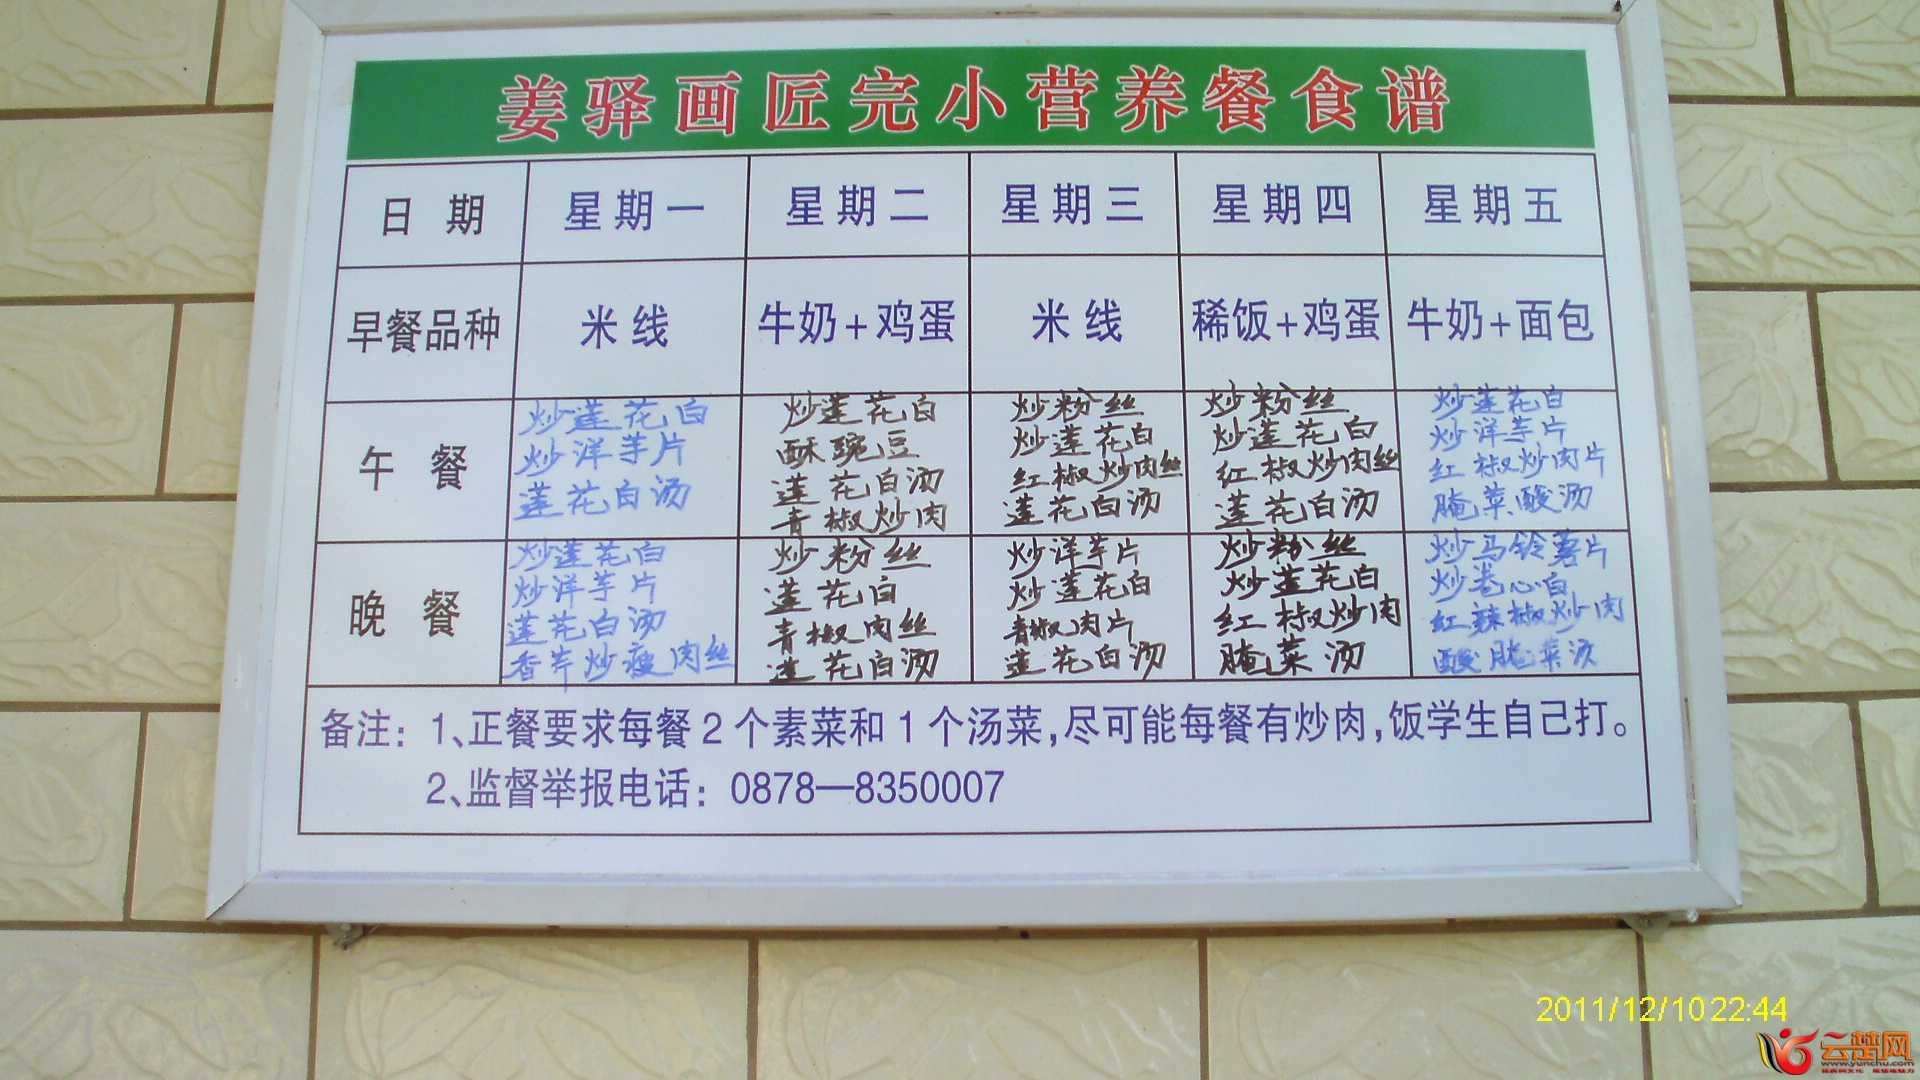 姜驿画匠完小营养餐食谱
日期 星期一 星期二 星期三 星期四 星期五
早餐品种 米线 牛奶+鸡蛋 米线 稀饭+鸡蛋 牛奶+面包
午餐
炒莲花白
炒洋芋片
莲花白汤
炒莲花白
酥豌豆
莲花白汤
青椒炒肉
炒粉丝
炒莲花白
红椒炒肉丝
莲花白汤
炒粉丝
炒莲花白
红椒炒肉丝
莲花白汤
炒莲花白
炒洋芋片
红椒炒肉片
腌菜酸汤
晚餐
炒莲花白
炒洋芋片
莲花白汤
香芹炒瘦肉丝
炒粉丝
莲花白
青椒肉丝
莲花白汤
炒洋芋片
炒莲花白
青椒肉片
莲花白汤
炒粉丝
炒莲花白
红椒炒肉
腌菜汤
炒马铃薯片
炒卷心白
红辣椒炒肉
酸腌菜汤
备注：1、正餐要求每餐2个素菜和1个汤菜,尽可能每餐有炒肉,饭学生自己打。
2、监督举报电话：0878—8350007
2011/12/10 22:44
云楚网
www.yunchu.com